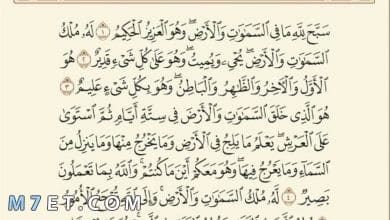 سَبَّحَ لِلَّهِ مَا فِي السَّمَٰوَٰتِ وَالْأَرْضِ ۖ وَهُوَ الْعَزِيزُ الْحَكِيمُ ١ لَهُ مُلْكُ
السَّمَٰوَٰتِ وَالْأَرْضِ ۖ يُحْيِي وَيُمِيتُ ۖ وَهُوَ عَلَىٰ كُلِّ شَيْءٍ قَدِيرٌ ٢ هُوَ
الْأَوَّلُ وَالْآخِرُ وَالظَّاهِرُ وَالْبَاطِنُ ۖ وَهُوَ بِكُلِّ شَيْءٍ عَلِيمٌ ٣
هُوَ الَّذِي خَلَقَ السَّمَٰوَٰتِ وَالْأَرْضَ فِي سِتَّةِ أَيَّامٍ ثُمَّ اسْتَوَىٰ
عَلَى الْعَرْشِ ۚ يَعْلَمُ مَا يَلِجُ فِي الْأَرْضِ وَمَا يَخْرُجُ مِنْهَا وَمَا يَنزِلُ مِنَ
السَّمَاءِ وَمَا يَعْرُجُ فِيهَا ۖ وَهُوَ مَعَكُمْ أَيْنَ مَا كُنتُمْ ۚ وَاللَّهُ بِمَا تَعْمَلُونَ
بَصِيرٌ ٤ لَّهُ مُلْكُ السَّمَٰوَٰتِ وَالْأَرْضِ ۚ وَإِلَى اللَّهِ تُرْجَعُ الْأُمُورُ
M7ET.COM